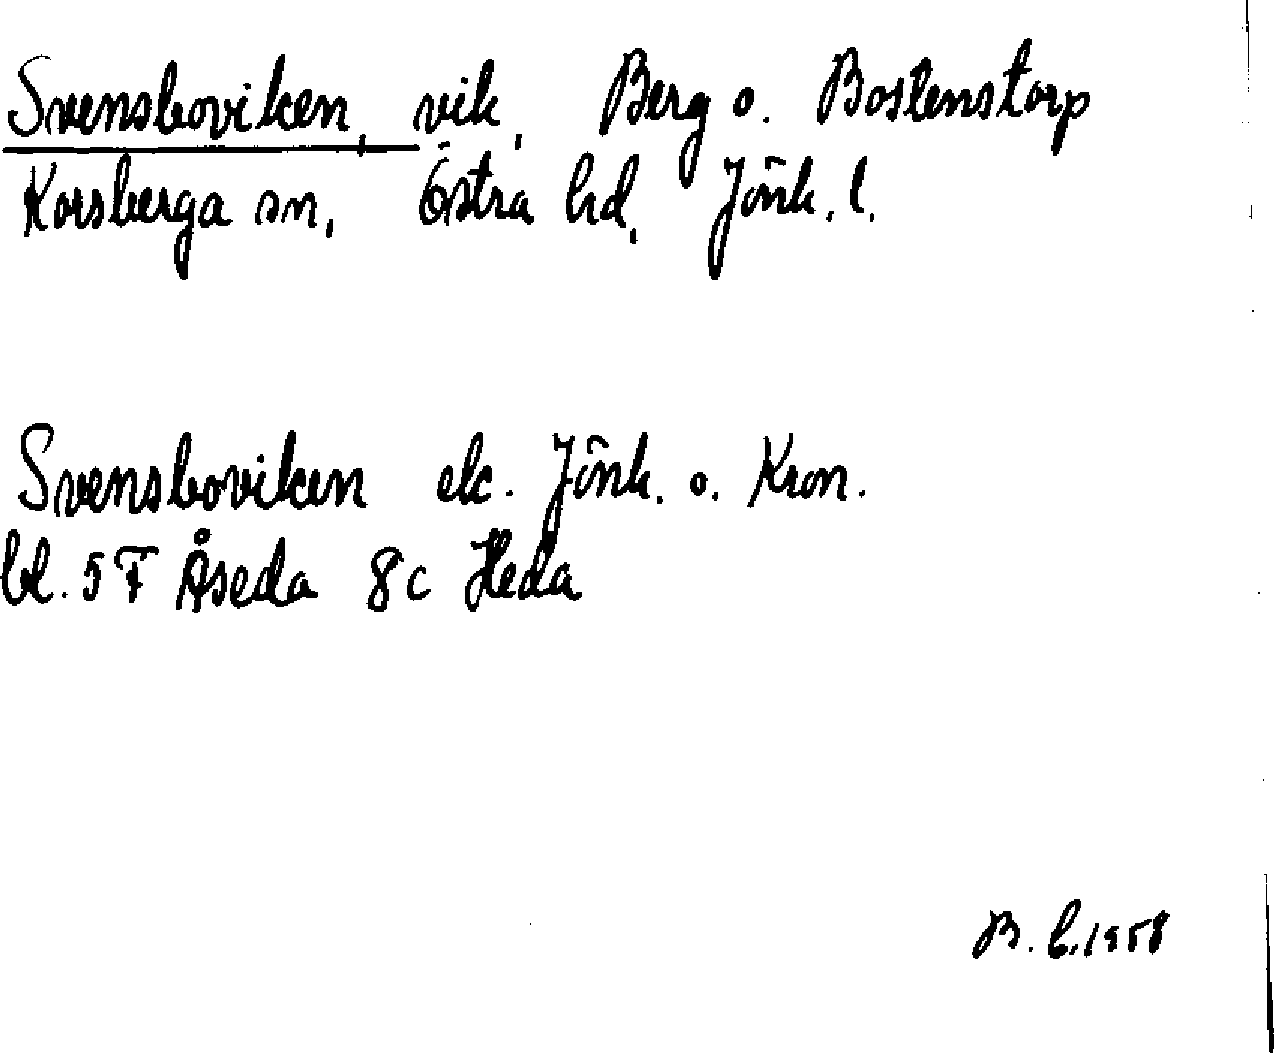 Svensboviken, vik, Berg o. Bostenstorp
Korsberga sn, Östra hd, Jönk. l.
Svensboviken ek. Jönk. o. Kron.
bl. 5F Åseda 8c Heda
B. L. 1958